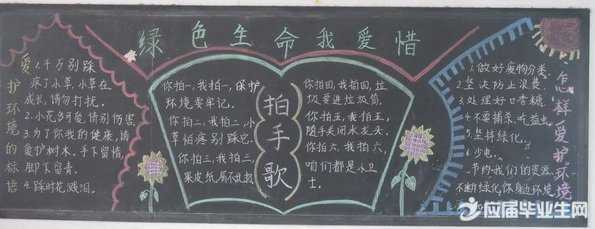 绿色生命我爱惜
爱护环境的标语
1.千万别踩
小草,小草在
成长,请勿打扰。
2.小花多可爱,请别伤害
3.为了你我的健康,请
爱护树木,手下留情,
脚下留青。
4.踩时花
你拍一,我拍一,保护
环境要牢记。
你拍二,我拍二,小
草怕疼别踩它。
你拍三,我拍三,
果皮纸屑不乱扔
拍手歌
你拍四,我拍四,垃
圾要进垃圾筒。
你拍五,我拍五,
随手关闭水龙头。
你拍六,我拍六,
咱们都是小卫
士。
怎样爱护环境
1.做好废物分类。
2.坚决防止浪费。
3.处理好口香糖。
4.不要捕杀、吃益虫。
5.坚持绿化。
6.少电
节约我们的资源,
不断绿化,你身边环境
应届毕业生网